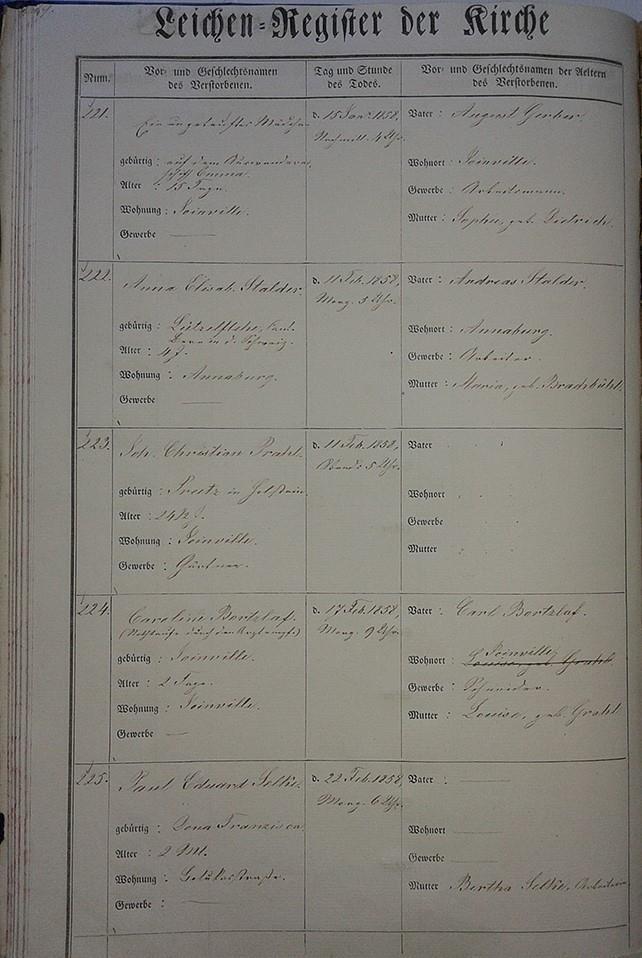 Leichen-Register der Kirche
Num.
Vor- und Geschlechtsnamen
des Verstorbenen.
Tag und Stunde
des Todes.
Vor- und Geschlechtsnamen der Aeltern
des Verstorbenen.
221.
Ein ungetauftes Mädchen
gebürtig : auf dem Auswanderer
schiff Emma.
Alter : 15 Tage.
Wohnung : Joinville.
Gewerbe
d. 15 Jan. 1858,
Nachmitt. 4 Uhr.
Vater : August Gerber.
Wohnort : Joinville.
Gewerbe : Arbeitsmann.
Mutter : Sophie, geb. Dietrich.
222.
Anna Elisab. Stalder.
gebürtig : Lützelflühe, Kant.
Bern in d. Schweiz.
Alter : 4 J.
Wohnung : Annaburg.
Gewerbe
d. 11 Feb. 1858,
Morg. 5 Uhr.
Vater : Andreas Stalder.
Wohnort : Annaburg.
Gewerbe : Arbeiter.
Mutter : Maria, geb.
223.
Joh. Christian Prahl.
gebürtig : Preetz in Holstein.
Alter : 24½ J.
Wohnung : Joinville.
Gewerbe : Gärtner.
d. 11 Feb. 1858,
Abends 5 Uhr.
Vater
Wohnort
Gewerbe
Mutter
224.
Caroline Bortzlaf.
(Nothtaufe durch den
gebürtig : Joinville.
Alter : 2 Tage.
Wohnung : Joinville.
Gewerbe :
d. 17 Feb. 1858,
Morg. 9 Uhr.
Vater : Carl Bortzlaf.
Joinville.
Wohnort : Louise, geb. Grahl
Gewerbe : Schneider.
Mutter : Louise, geb. Grahl
225.
Paul Eduard Selke.
gebürtig : Dona Francisca.
Alter : 2 Mt.
Wohnung :
Gewerbe :
d. 22 Feb. 1858,
Morg. 6 Uhr.
Vater :
Wohnort
Gewerbe
Mutter Bertha Selke, Arbeiterin